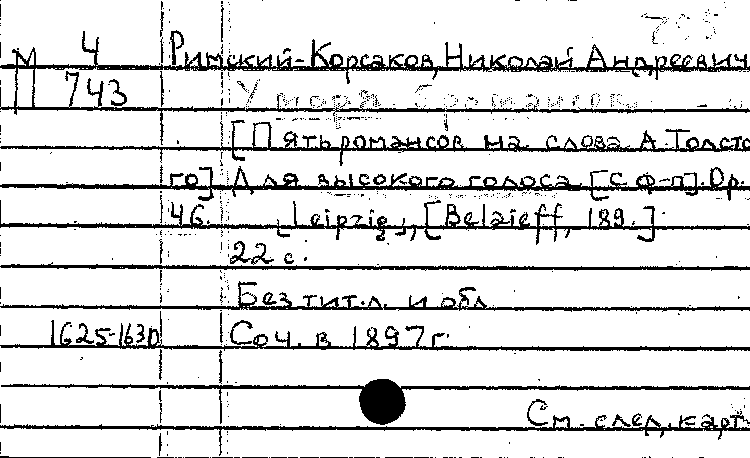 795
4 Римский-Корсаков, Николай Андреевич
М 743 У моря. 5 романсов
[Пять романсов на слова А. Толсто
го] Для высокого голоса [с ф-п]. Op.
46. [Leipzig], [Belaieff, 189.]
22 с.
Без тит. л. и обл
1625-1630 Соч. в 1897 г.
См. след. карт